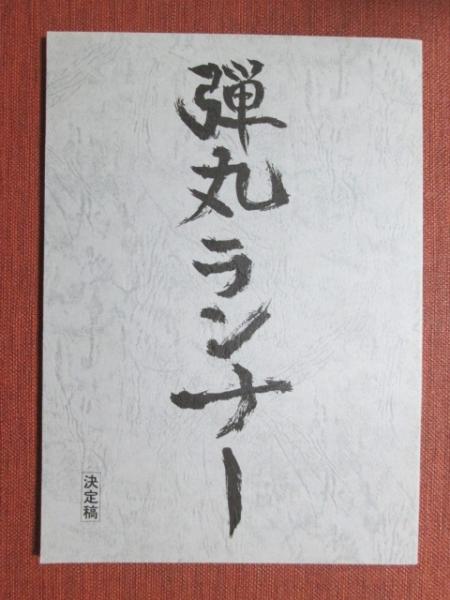 弾丸ランナー
決定稿